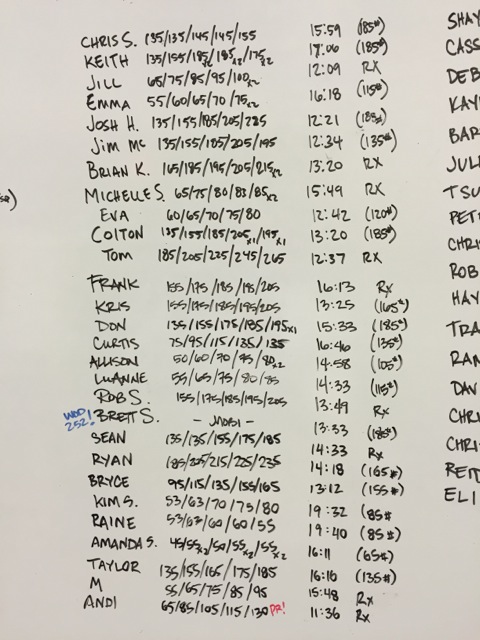 CHRIS S. 135/135/145/145/155 15:59 (185#)
KEITH 135/155/185/185x2/175x2 17:06 (185#)
JILL 65/75/85/95/100x2 12:09 RX
EMMA 55/60/65/70/75x2 16:18 (115#)
JOSH H. 135/155/185/205/225 12:21 (185#)
JIM MC 135/155/185/205/195 12:34 (135#)
BRIAN K. 165/185/195/205/215x2 13:20 RX
MICHELLE S. 65/75/80/83/85x2 15:49 RX
EVA 60/65/70/75/80 12:42 (120#)
COLTON 135/155/185/205x1/195x1 13:20 (185#)
TOM 185/205/225/245/265 12:37 RX
FRANK 155/175/185/195/205 16:13 Rx
KRIS 155/175/185/195/205 13:25 (165#)
DON 135/155/175/185/195x1 15:33 (185#)
CURTIS 75/95/115/135/135 16:46 (135#)
ALLISON 50/60/70/75/80x2 14:58 (105#)
LUANNE 55/65/75/80/85 14:33 (115#)
ROB S. 155/175/185/195/205 13:49 Rx
WOD 252! BRETT S. 13:33 (185#)
SEAN 135/135/155/175/185 14:33 Rx
RYAN 185/205/215/225/235 14:18 (165#)
BRYCE 95/115/135/155/165 13:12 (155#)
KIM S. 53/63/70/75/80 19:32 (85#
RAINE 53/63/60/60/55 19:40 (85#)
AMANDA S. 45/55x2/50/55x2/55x2 16:11 (65#)
TAYLOR 135/155/165/175/185 16:16 (135#)
M 55/65/75/85/95 15:48 Rx
ANDI 65/85/105/115/130 PR! 11:36 Rx
SHAY
CASS
DEB
KAY
BAR
JUL
TSU
PET
CHRI
ROB
HAY
TRA
RAN
DAV
CHRI
CHRI
REID
ELI